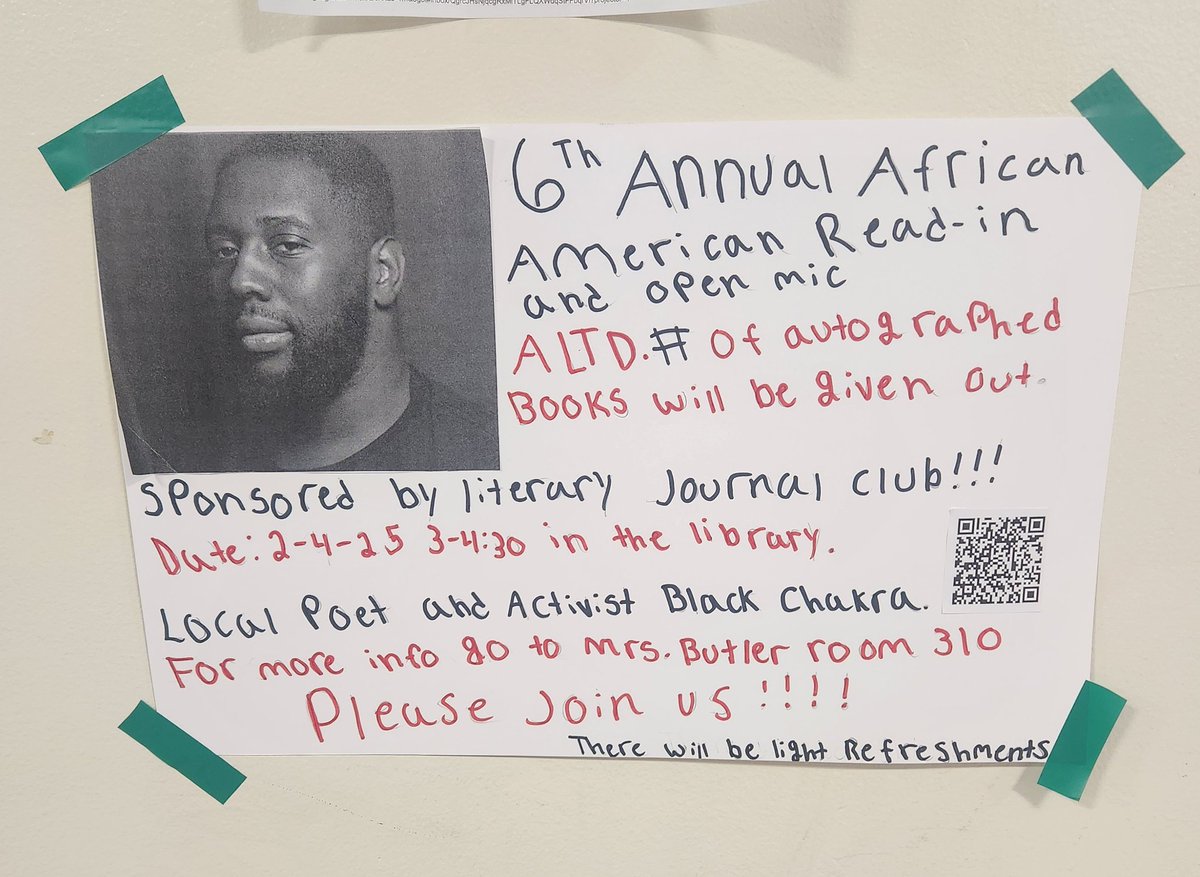 6Th Annual African
American Read-in
and open mic
A LTD. # of autographed
Books will be given out.
Sponsored by literary Journal club!!!
Date: 2-4-25 3-4:30 in the library.
Local Poet and Activist Black Chakra.
For more info go to Mrs. Butler room 310
Please Join us !!!!
There will be light Refreshments